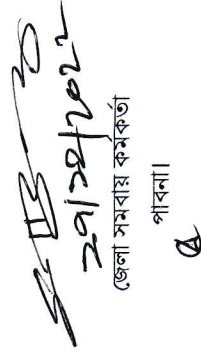 ২৭/১২/২০২২
জেলা সমবায় কর্মকর্তা
পাবনা।